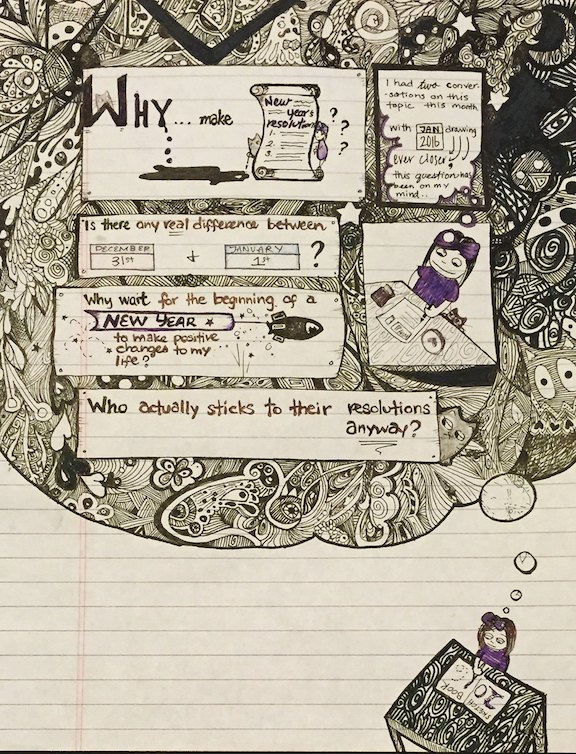 WHY... make
New
year's
resolutions
1.
2.
3.
?
?
?
I had two conver-
-sations on this
topic this month
with JAN drawing
2016
ever closer!!!
this question has
been on my
mind..
Is there any real difference between
DECEMBER
31st
&
JANUARY
1st
?
Why wait for the beginning of a
NEW YEAR
to make positive
changes to my
life?
Who actually sticks to their resolutions
anyway?
20
BOOK